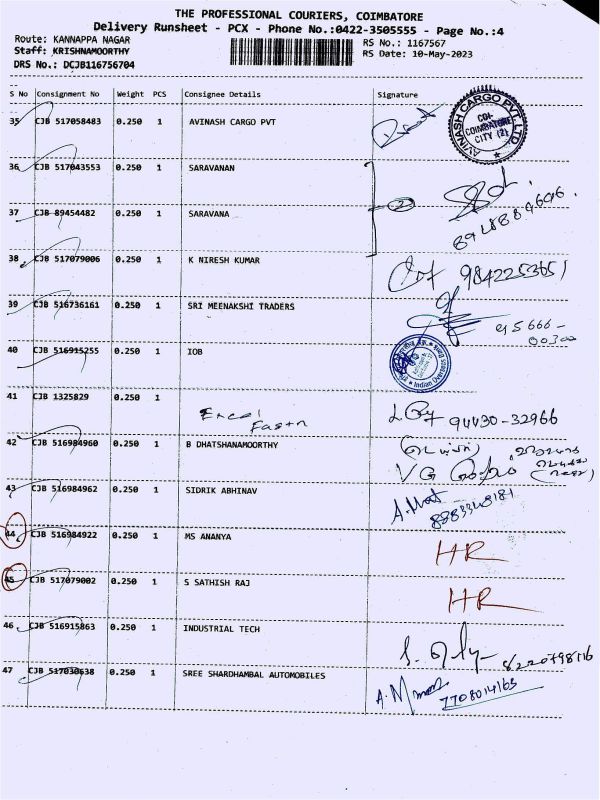 THE PROFESSIONAL COURIERS, COIMBATORE
Delivery Runsheet - PCX - Phone No.:0422-3505555 - Page No.:4
Route: KANNAPPA NAGAR
RS No.: 1167567
Staff: KRISHNAMOORTHY
RS Date: 10-May-2023
DRS No.: DCJB116756704
S No Consignment No Weight PCS Consignee Details Signature
35 CJB 517058483 0.250 1 AVINASH CARGO PVT
AVINASH CARGO PVT. LTD.
COIMBATORE
CITY (2)
36 CJB 517043553 0.250 1 SARAVANAN
2
37 CJB 89454482 0.250 1 SARAVANA
38 CJB 517079006 0.250 1 K NIRESH KUMAR
9842253651
39 CJB 516736161 0.250 1 SRI MEENAKSHI TRADERS
95666-
00300
40 CJB 516915255 0.250 1 IOB
Indian Overseas Bank
41 CJB 1325829 0.250 1
Excel
94430-32966
42 CJB 516984960 0.250 1 B DHATSHANAMOORTHY
VG
43 CJB 516984962 0.250 1 SIDRIK ABHINAV
44 CJB 516984922 0.250 1 MS ANANYA
HR
45 CJB 517079002 0.250 1 S SATHISH RAJ
HR
46 CJB 516915863 0.250 1 INDUSTRIAL TECH
47 CJB 517030638 0.250 1 SREE SHARDHAMBAL AUTOMOBILES
7708014163